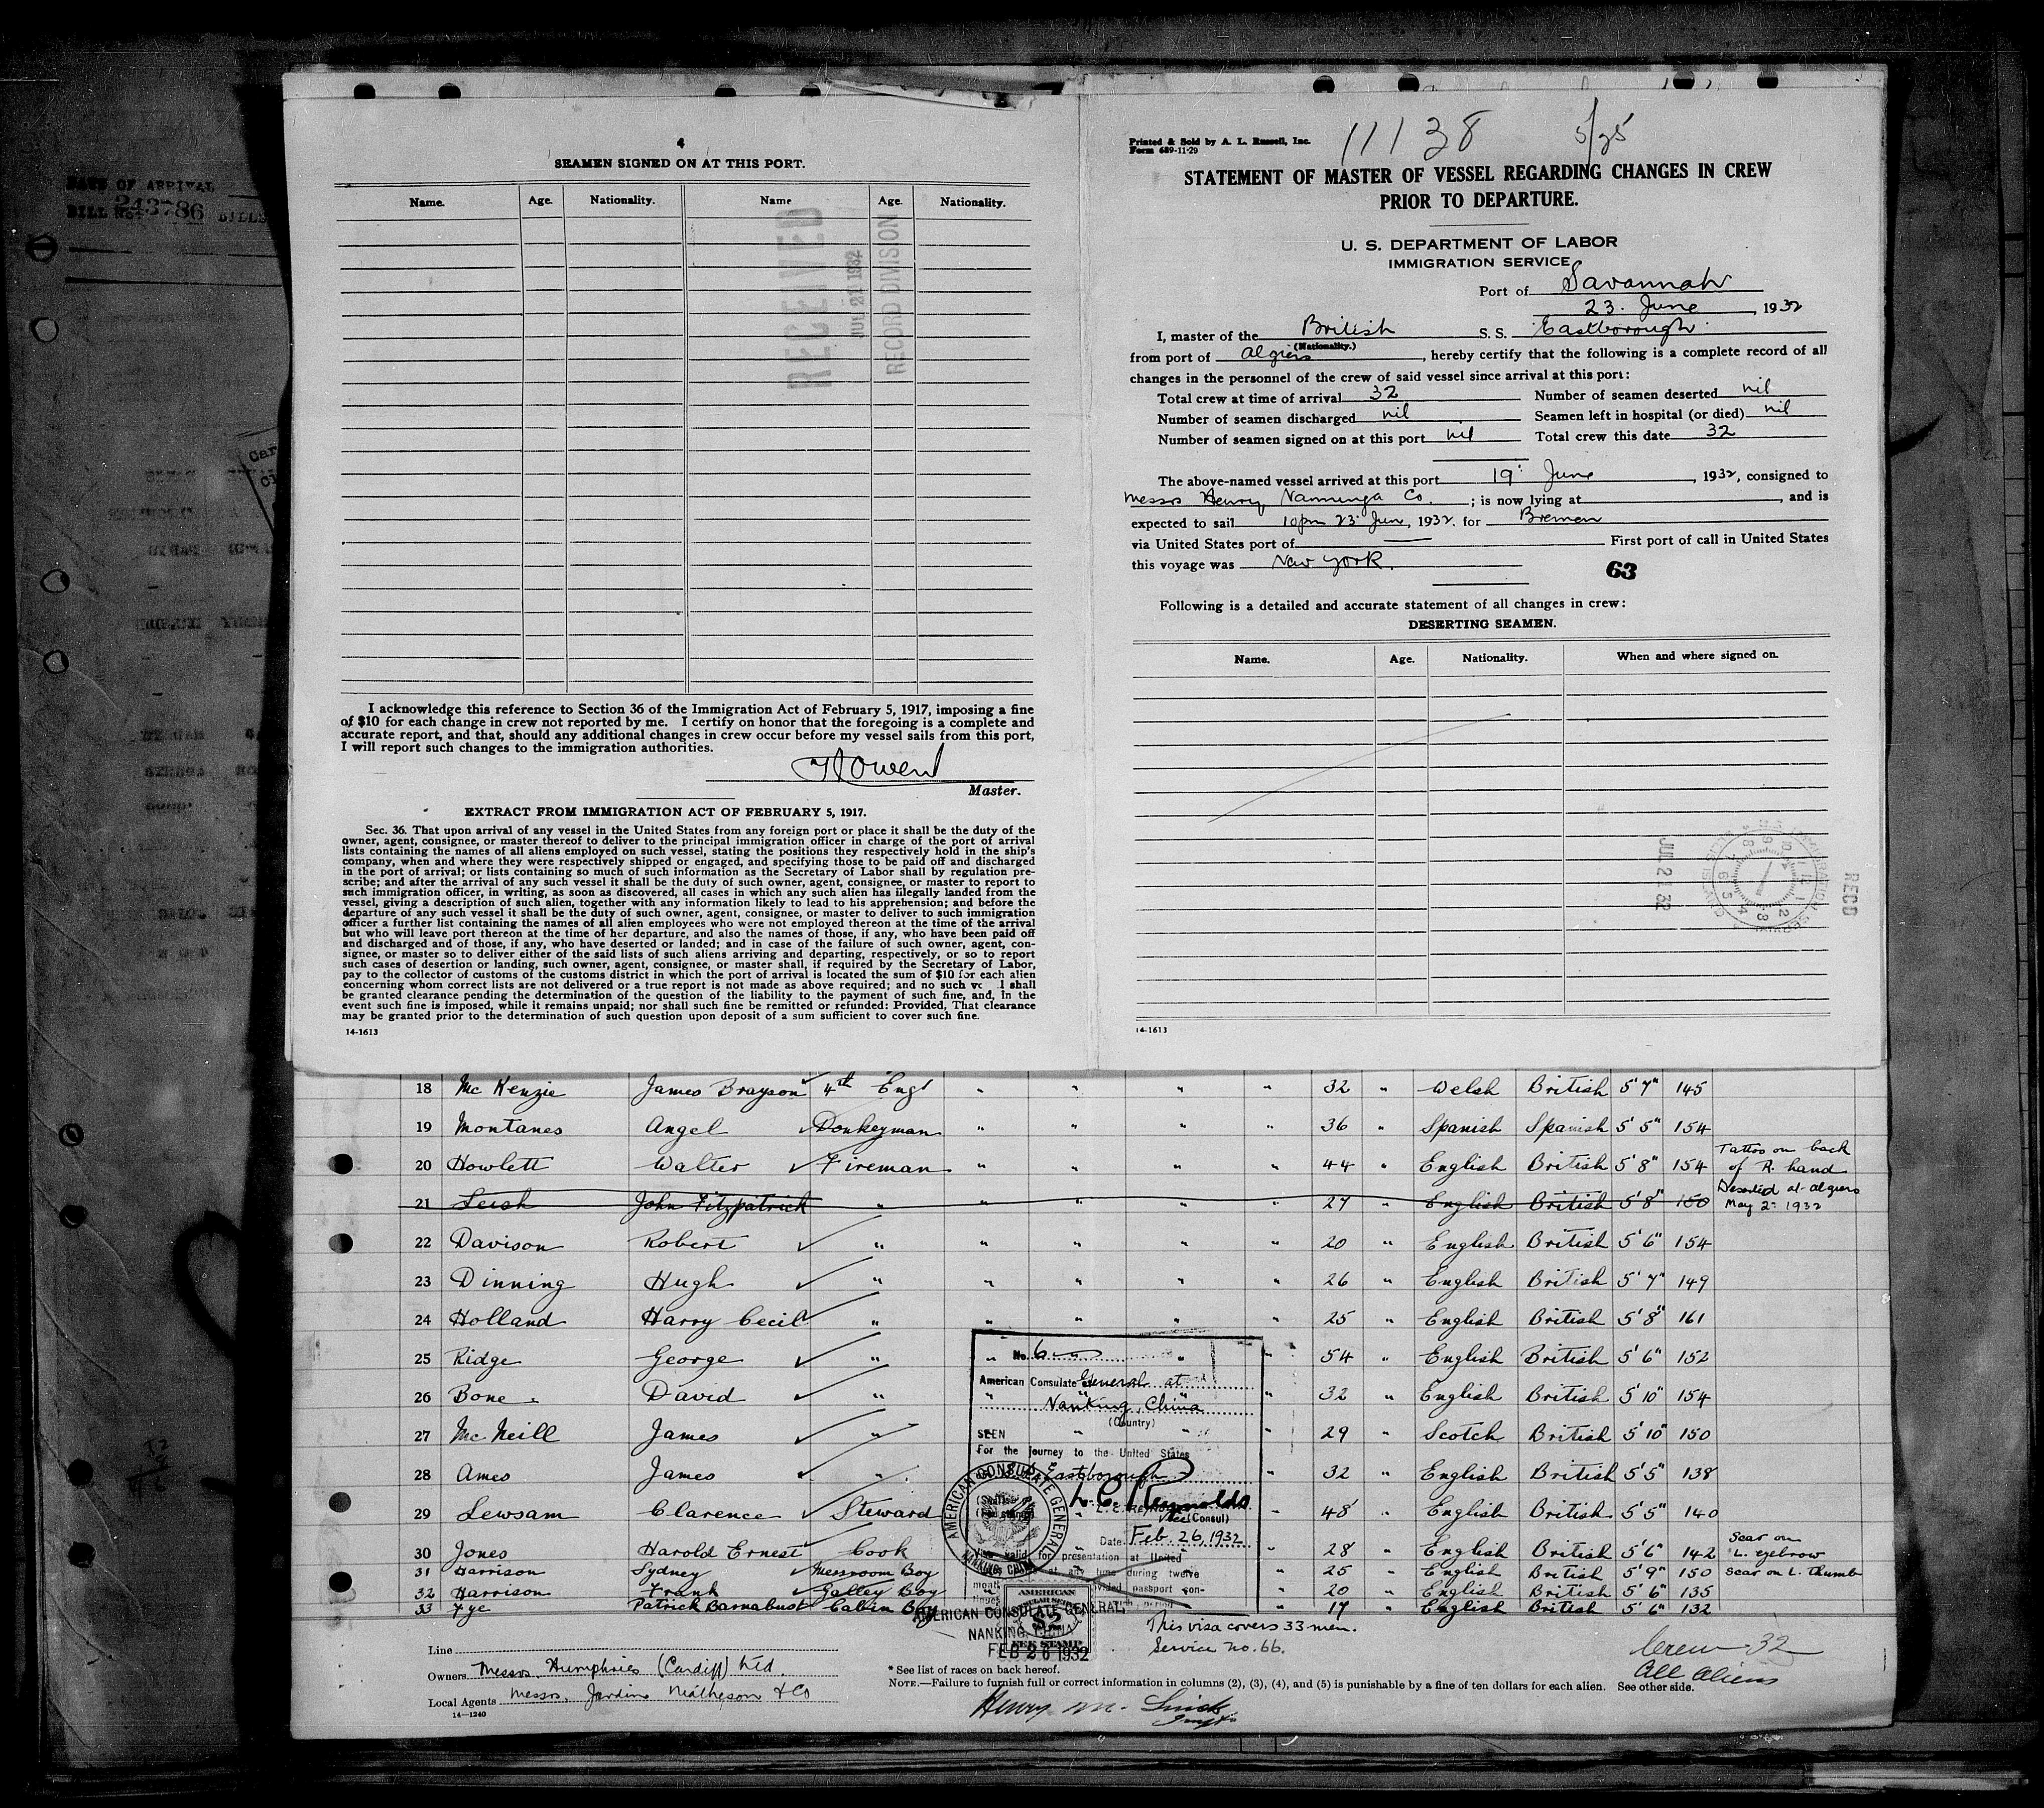 DATE OF ARRIVAL
BILL No. 243786 BILLS
4
SEAMEN SIGNED ON AT THIS PORT.
Name. Age. Nationality. Name Age. Nationality.
RECEIVED
JUL 21 1932
RECORD DIVISION
I acknowledge this reference to Section 36 of the Immigration Act of February 5, 1917, imposing a fine
of $10 for each change in crew not reported by me. I certify on honor that the foregoing is a complete and
accurate report, and that, should any additional changes in crew occur before my vessel sails from this port,
I will report such changes to the immigration authorities.
Owen
Master.
EXTRACT FROM IMMIGRATION ACT OF FEBRUARY 5, 1917.
Sec. 36. That upon arrival of any vessel in the United States from any foreign port or place it shall be the duty of the
owner, agent, consignee, or master thereof to deliver to the principal immigration officer in charge of the port of arrival
lists containing the names of all aliens employed on such vessel, stating the positions they respectively hold in the ship's
company, when and where they were respectively shipped or engaged, and specifying those to be paid off and discharged
in the port of arrival; or lists containing so much of such information as the Secretary of Labor shall by regulation pre-
scribe; and after the arrival of any such vessel it shall be the duty of such owner, agent, consignee, or master to report to
such immigration officer, in writing, as soon as discovered, all cases in which any such alien has illegally landed from the
vessel, giving a description of such alien, together with any information likely to lead to his apprehension; and before the
departure of any such vessel it shall be the duty of such owner, agent, consignee, or master to deliver to such immigration
officer a further list containing the names of all alien employees who were not employed thereon at the time of the arrival
but who will leave port thereon at the time of her departure, and also the names of those, if any, who have been paid off
and discharged and of those, if any, who have deserted or landed; and in case of the failure of such owner, agent, con-
signee, or master so to deliver either of the said lists of such aliens arriving and departing, respectively, or so to report
such cases of desertion or landing, such owner, agent, consignee, or master shall, if required by the Secretary of Labor,
pay to the collector of customs of the customs district in which the port of arrival is located the sum of $10 for each alien
concerning whom correct lists are not delivered or a true report is not made as above required; and no such ve l shall
be granted clearance pending the determination of the question of the liability to the payment of such fine, and, in the
event such fine is imposed, while it remains unpaid; nor shall such fine be remitted or refunded: Provided, That clearance
may be granted prior to the determination of such question upon deposit of a sum sufficient to cover such fine.
14-1613
Printed & Sold by A. L. Russell, Inc.
Form 689-11-29
11138 5/25
STATEMENT OF MASTER OF VESSEL REGARDING CHANGES IN CREW
PRIOR TO DEPARTURE.
U. S. DEPARTMENT OF LABOR
IMMIGRATION SERVICE
Port of Savannah
23 June, 1932
I, master of the British S. S. Eastborough
(Nationality.)
from port of Algiers, hereby certify that the following is a complete record of all
changes in the personnel of the crew of said vessel since arrival at this port:
Total crew at time of arrival 32 Number of seamen deserted nil
Number of seamen discharged nil Seamen left in hospital (or died) nil
Number of seamen signed on at this port nil Total crew this date 32
The above-named vessel arrived at this port 19 June, 1932, consigned to
Messrs Henry Nanninga Co.; is now lying at , and is
expected to sail 10pm 23 Jun, 1932. for Bremen
via United States port of — First port of call in United States
this voyage was New York.
63
Following is a detailed and accurate statement of all changes in crew:
DESERTING SEAMEN.
Name. Age. Nationality. When and where signed on.
JUL 21 32
RECD
14-1613
18 McKenzie James Brayson 4th Eng " " " " 32 " Welsh British 5'7" 145
19 Montanes Angel Donkeyman " " " " 36 " Spanish Spanish 5'5" 154
20 Howlett Walter Fireman " " " " 44 " English British 5'8" 154 Tattoo on back of R. hand
21 Leish John Fitzpatrick " " " " " 27 " English British 5'8" 150 Deserted at Algiers May 2: 1932
22 Davison Robert " " " " " 20 " English British 5'6" 154
23 Dinning Hugh " " " " " 26 " English British 5'7" 149
24 Holland Harry Cecil " " " " " 25 " English British 5'8" 161
25 Ridge George " " " " 54 " English British 5'6" 152
26 Bone David " " " " 32 " English British 5'10" 154
27 McNeill James " " " " 29 " Scotch British 5'10" 150
28 Ames James " " 32 " English British 5'5" 138
29 Lewsam Clarence Steward " 48 " English British 5'5" 140
30 Jones Harold Ernest Cook " 28 " English British 5'6" 142 Scar on L. eyebrow
31 Harrison Sydney Messroom Boy " 25 " English British 5'9" 150 Scar on L. thumb
32 Harrison Frank Galley Boy " 20 " English British 5'6" 135
33 Fye Patrick Barnabust Cabin Boy " 17 " English British 5'6" 132
No. 6
American Consulate General at
Nanking, China
(Country)
SEEN
For the journey to the United States
Eastborough
L. C. Reynolds
Vice (Consul)
Date Feb. 26, 1932
valid for presentation at United
at any time during twelve
passport con-
AMERICAN CONSULATE GENERAL
NANKING, CHINA
AMERICAN
$2
FEE STAMP
AMERICAN CONSULATE GENERAL,
NANKING, CHINA
FEB 26 1932
This visa covers 33 men.
Service no. 66.
Crew 32
All Aliens
Line
Owners Messrs. Humphries (Cardiff) Ltd.
Local Agents Messrs. Jardine Matheson & Co
14—1240
* See list of races on back hereof.
NOTE.—Failure to furnish full or correct information in columns (2), (3), (4), and (5) is punishable by a fine of ten dollars for each alien. See other side.
Henry M.